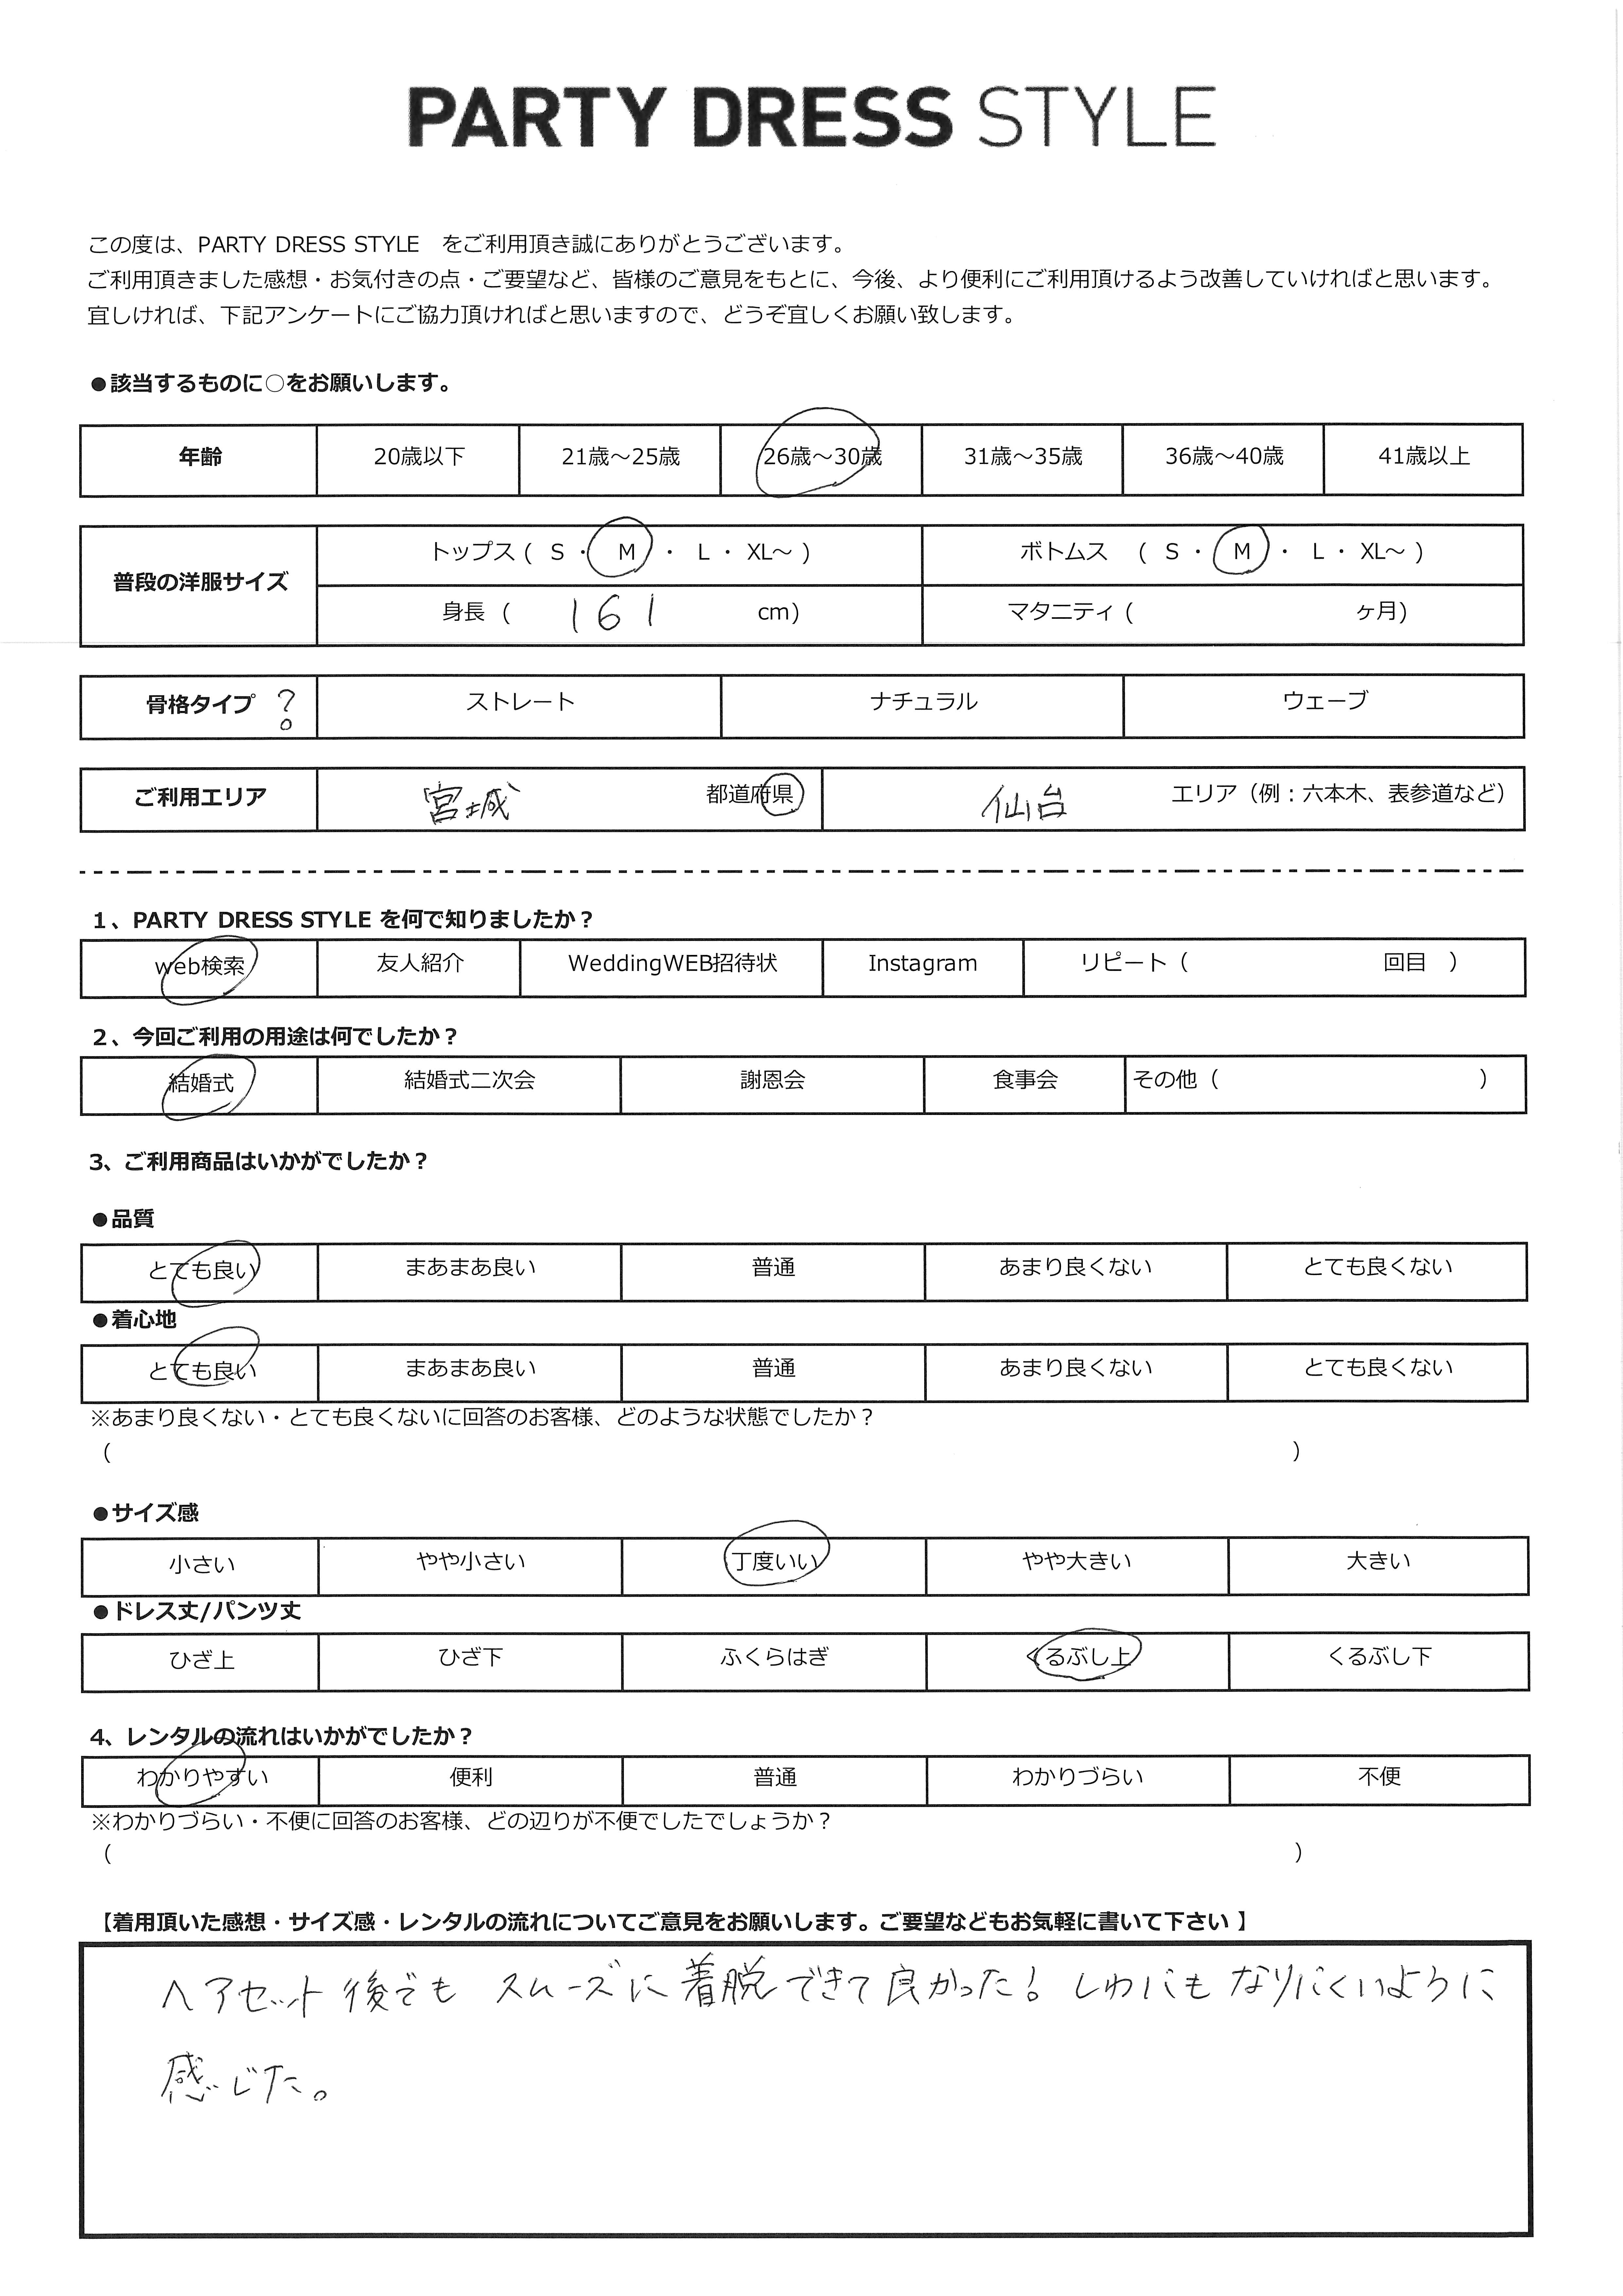 PARTY DRESS STYLE
この度は、PARTY DRESS STYLE　をご利用頂き誠にありがとうございます。
ご利用頂きました感想・お気付きの点・ご要望など、皆様のご意見をもとに、今後、より便利にご利用頂けるよう改善していければと思います。
宜しければ、下記アンケートにご協力頂ければと思いますので、どうぞ宜しくお願い致します。
●該当するものに○をお願いします。
年齢 20歳以下 21歳～25歳 26歳～30歳 31歳～35歳 36歳～40歳 41歳以上
普段の洋服サイズ トップス ( S ・ M ・ L ・ XL～ ) ボトムス ( S ・ M ・ L ・ XL～ )
身長 ( 161 cm) マタニティ ( ヶ月)
骨格タイプ ? ストレート ナチュラル ウェーブ
ご利用エリア 宮城 都道府県 仙台 エリア（例：六本木、表参道など）
1、PARTY DRESS STYLE を何で知りましたか？
web検索 友人紹介 WeddingWEB招待状 Instagram リピート（ 回目 ）
2、今回ご利用の用途は何でしたか？
結婚式 結婚式二次会 謝恩会 食事会 その他（ ）
3、ご利用商品はいかがでしたか？
●品質
とても良い まあまあ良い 普通 あまり良くない とても良くない
●着心地
とても良い まあまあ良い 普通 あまり良くない とても良くない
※あまり良くない・とても良くないに回答のお客様、どのような状態でしたか？
（ ）
●サイズ感
小さい やや小さい 丁度いい やや大きい 大きい
●ドレス丈/パンツ丈
ひざ上 ひざ下 ふくらはぎ くるぶし上 くるぶし下
4、レンタルの流れはいかがでしたか？
わかりやすい 便利 普通 わかりづらい 不便
※わかりづらい・不便に回答のお客様、どの辺りが不便でしたでしょうか？
（ ）
【着用頂いた感想・サイズ感・レンタルの流れについてご意見をお願いします。ご要望などもお気軽に書いて下さい 】
ヘアセット後でも スムーズに着脱できて良かった! しわにも なりにくいように
感じた。